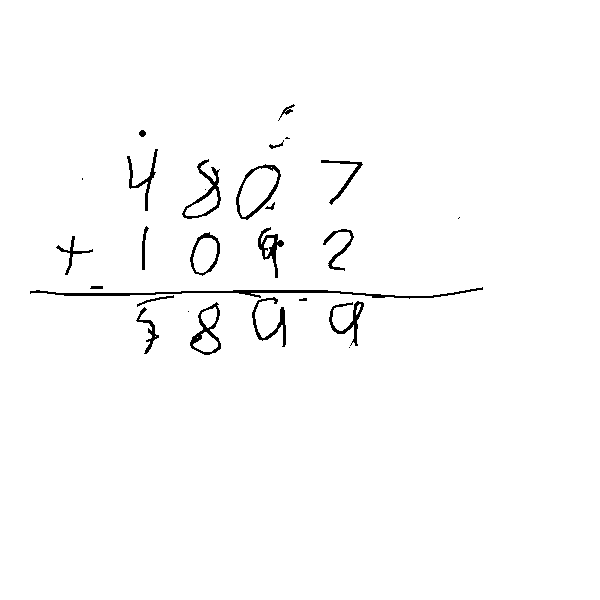 4807
+ 1092
5899